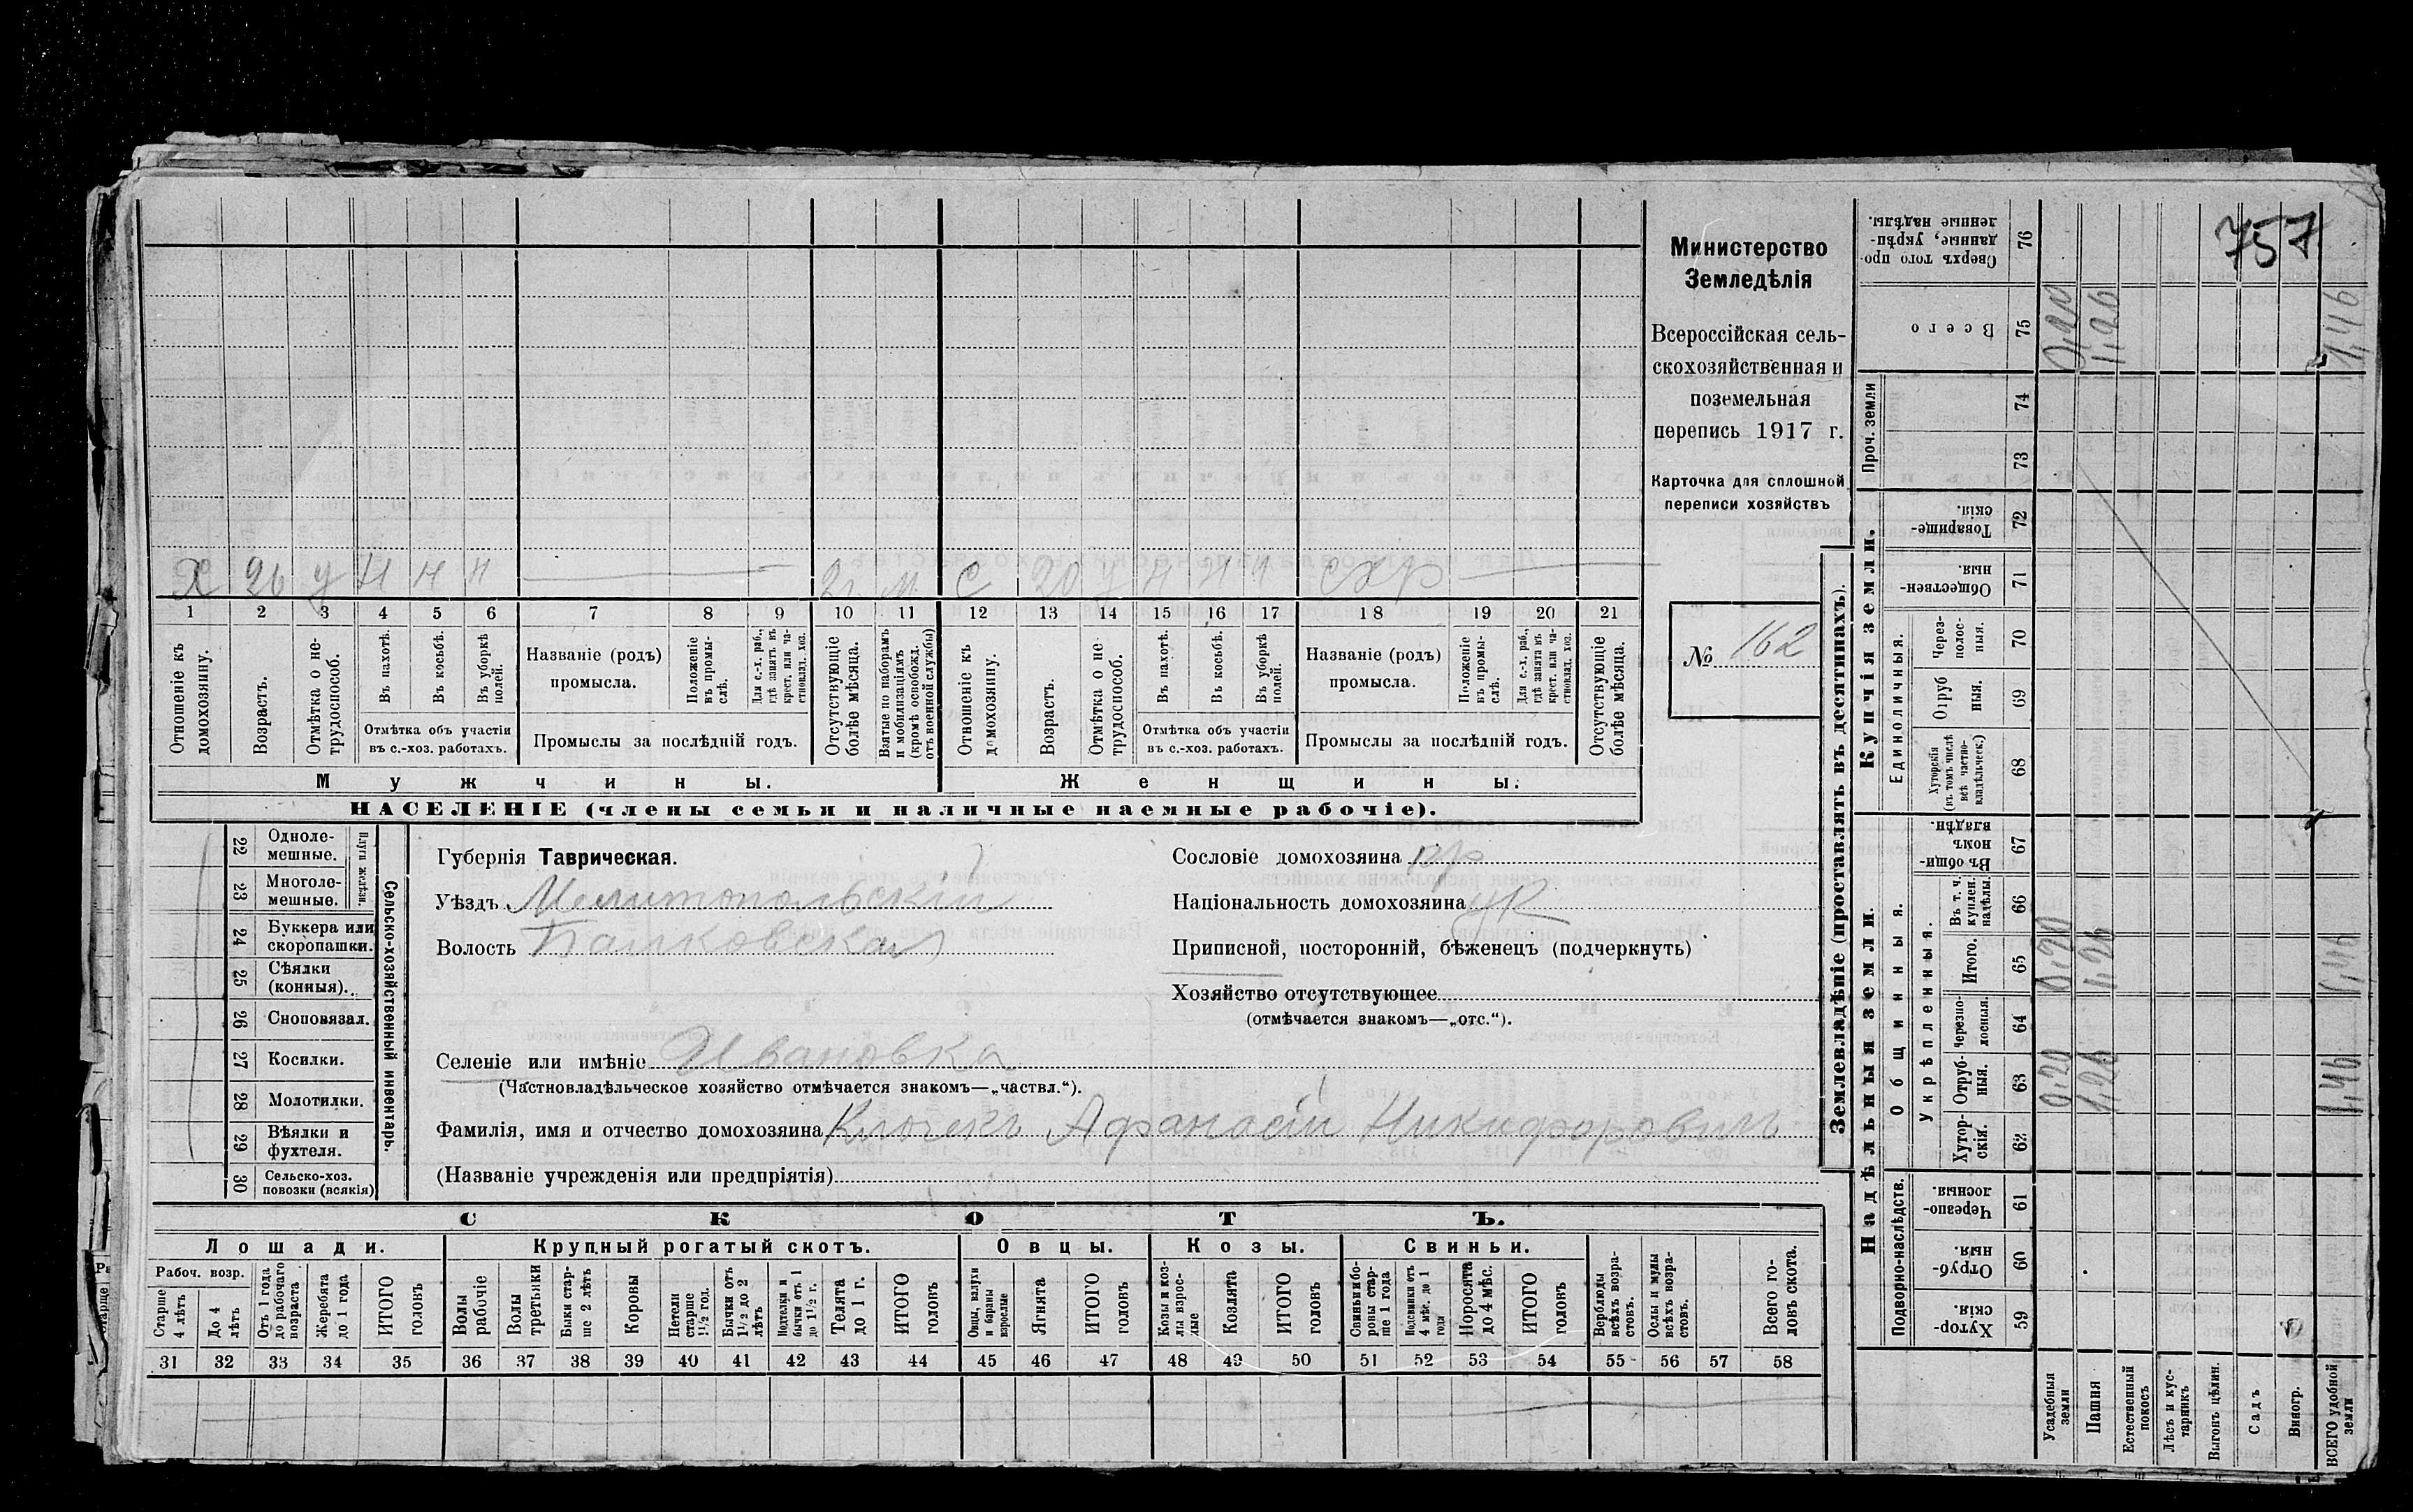 757
Министерство
Земледѣлія
Всероссійская сель-
скохозяйственная и
поземельная
перепись 1917 г.
Карточка для сплошной
переписи хозяйствъ
№ 162
Х 26 У Н Н Н 2 г. м. С 20 У Н Н Н
1 2 3 4 5 6 7 8 9 10 11 12 13 14 15 16 17 18 19 20 21
Отношеніе къ домохозяину.
Возрастъ.
Отмѣтка о не-трудоспособ.
Въ пахотѣ.
Въ косьбѣ.
Въ уборкѣ полей.
Отмѣтка объ участіи
въ с.-хоз. работахъ.
Названіе (родъ)
промысла.
Положеніе въ промы-слѣ.
Для с.-х. раб., гдѣ занятъ въ крест. или ча-стновлад. хоз.
Промыслы за послѣдній годъ.
Отсутствующіе болѣе мѣсяца.
Взятые по наборамъ и мобилизаціямъ (кромѣ освобожд. отъ военной службы)
Отношеніе къ домохозяину.
Возрастъ.
Отмѣтка о не трудоспособ.
Въ пахотѣ.
Въ косьбѣ.
Въ уборкѣ полей.
Отмѣтка объ участіи
въ с.-хоз. работахъ.
Названіе (родъ)
промысла.
Положеніе въ промы-слѣ.
Для с.-х. раб., гдѣ занята въ крест. или ча-стновлад. хоз.
Промыслы за послѣдній годъ.
Отсутствующіе болѣе мѣсяца.
Мужчины. Женщины.
НАСЕЛЕНІЕ (члены семьи и наличные наемные рабочіе).
Сельско-хозяйственный инвентарь.
Плуги желѣзн.
22 Одноле-мешные.
23 Многоле-мешные.
24 Буккера или скоропашки.
25 Сѣялки (конныя).
26 Сноповязал.
27 Косилки.
28 Молотилки.
29 Вѣялки и фухтеля.
30 Сельско-хоз. повозки (всякія)
Губернія Таврическая.
Уѣздъ Мелитопольскій
Волость
Сословіе домохозяина кр
Національность домохозяина ук
Приписной, посторонній, бѣженецъ (подчеркнуть)
Хозяйство отсутствующее
(отмѣчается знакомъ—„отс.“).
Селеніе или имѣніе Ивановка
(Частновладѣльческое хозяйство отмѣчается знакомъ—„частвл.“).
Фамилія, имя и отчество домохозяина Клочекъ Афанасій Никифоровичъ
(Названіе учрежденія или предпріятія)
СКОТЪ.
Лошади. Крупный рогатый скотъ. Овцы. Козы. Свиньи.
Рабоч. возр.
Старше 4 лѣтъ
До 4 лѣтъ
Отъ 1 года до рабочаго возраста
Жеребята до 1 года
ИТОГО головъ
Волы рабочіе
Волы третьяки
Быки стар-ше 2 лѣтъ
Коровы
Нетели старше 1 1/2 год.
Бычки отъ 1 1/2 до 2 лѣтъ
Подтелки и бычки отъ 1 до 1 1/2 г.
Телята до 1 г.
ИТОГО головъ
Овцы, валухи и бараны взрослые
Ягнята
ИТОГО головъ
Козы и коз-лы взрос-лые
Козлята
ИТОГО головъ
Свиньи и бо-ровы стар-ше 1 года
Подсвинки отъ 4 мѣс. до 1 года
Поросята до 4 мѣс.
ИТОГО головъ
Верблюды всѣхъ возра-стовъ.
Ослы и мулы всѣхъ возра-стовъ.
Всего го-ловъ скота.
31 32 33 34 35 36 37 38 39 40 41 42 43 44 45 46 47 48 49 50 51 52 53 54 55 56 57 58
Землевладѣніе (проставлять въ десятинахъ).
Надѣльныя земли. Купчія земли.
Подворно-наслѣдств.
Общинныя.
Укрѣпленныя.
Единоличныя.
Проч. земли
Хутор-скія. 59
Отруб-ныя. 60
Черезпо-лосныя. 61
Хутор-скія. 62
Отруб-ныя. 63
Черезпо-лосныя. 64
Итого. 65
Въ т. ч. куплен. надѣлы. 66
Въ общи-номъ владѣн. 67
Хуторскія (въ томъ числѣ всѣ частно-владѣльческ.) 68
Отруб ныя. 69
Через-полос-ныя. 70
Обществен-ныя. 71
Товарище-скія. 72
73
74
Всего 75
Сверхъ того про-данные, укрѣп-ленные надѣлы. 76
Усадебныя земли 0,20 0,20 0,20
Пашня 1,26 1,26 1,26
Естественный покосъ
Лѣсъ и кус-тарникъ
Выгонъ цѣлин.
Садъ
Виногр.
ВСЕГО удобной земли 1,46 1,46 1,46